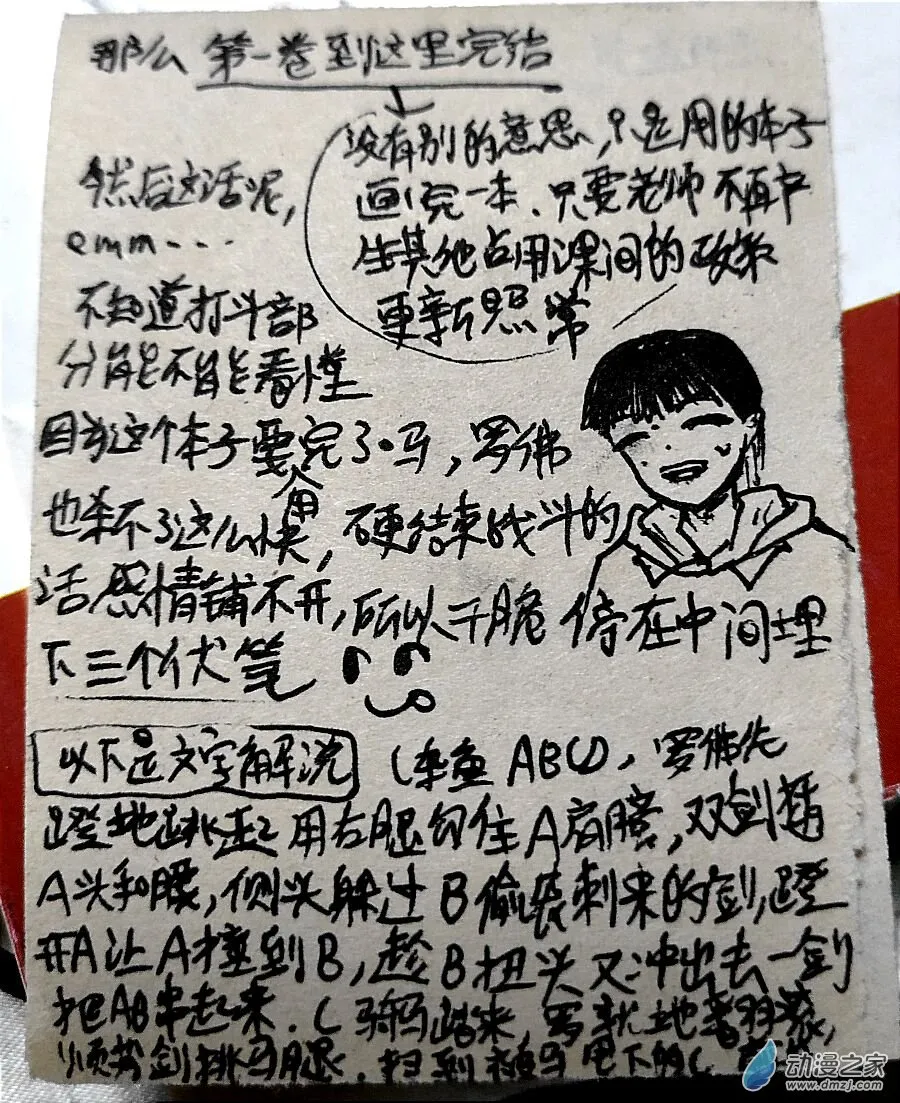 那么 第一卷到这里完结
没有别的意思,只是用的本子
画完一本.只要老师不再产
生其他占用课间的政策
更新照常
然后这话呢,
emm...
不知道打斗部
分能不能看懂
因为这个本子要完了·马,罗佛
也杀不了这么快,硬结束战斗的
话感情铺不开,所以干脆 停在中间埋
下三个伏笔
以下是文字解说 (杂鱼ABC),罗佛先
蹬地跳起用右腿勾住A肩膀,双剑插
A头和腰,侧头躲过B偷袭刺来的剑,蹬
开A让A撞到B,趁B扭头又冲出去一剑
把AB串起来.(骑马踏来,罗就地翻滚,
顺势剑挑马腿,扫到被马甩下的C
动漫之家
www.dmzj.com